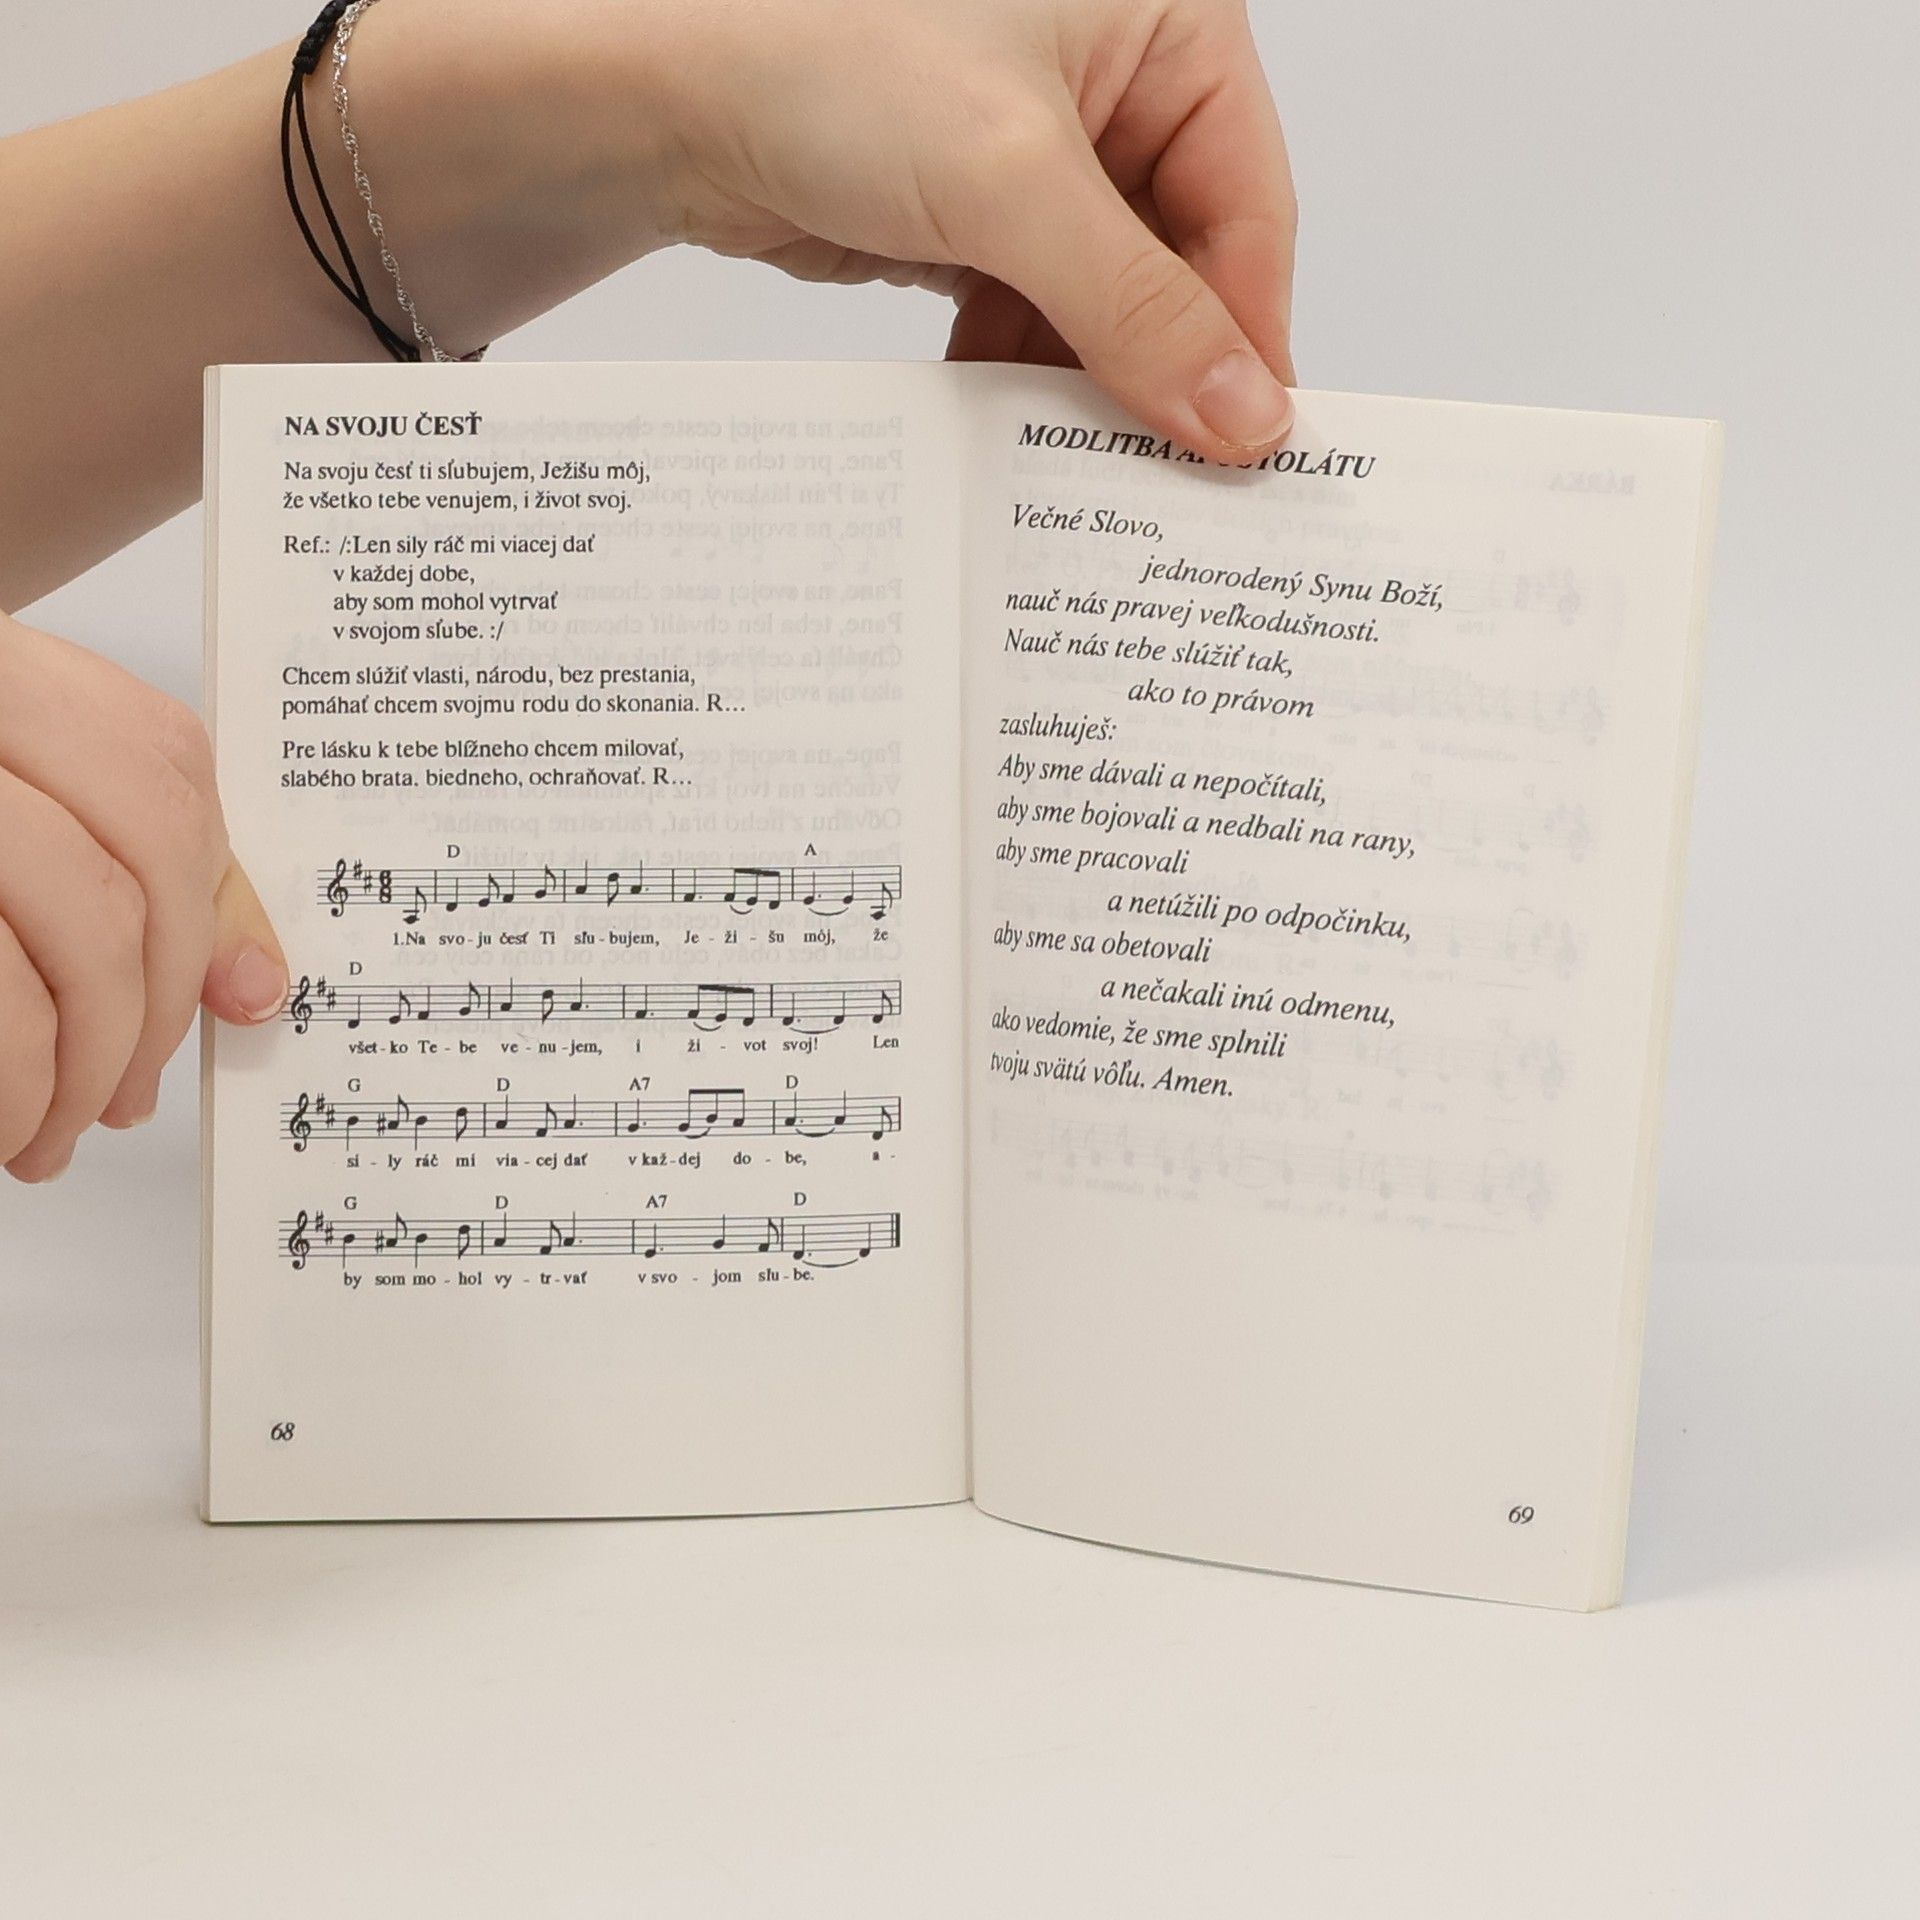 NA SVOJU ČESŤ
Na svoju česť ti sľubujem, Ježišu môj,
že všetko tebe venujem, i život svoj.
Ref.: /:Len sily ráč mi viacej dať
v každej dobe,
aby som mohol vytrvať
v svojom sľube. :/
Chcem slúžiť vlasti, národu, bez prestania,
pomáhať chcem svojmu rodu do skonania. R…
Pre lásku k tebe blížneho chcem milovať,
slabého brata. biedneho, ochraňovať. R…
D A
1.Na svo - ju česť Ti sľu - bujem, Je - ži - šu môj, že
D
všet - ko Te - be ve - nu - jem, i ži - vot svoj! Len
G D A7 D
si - ly ráč mi via - cej dať v kaž - dej do - be, a -
G D A7 D
by som mo - hol vy - tr - vať v svo - jom sľu - be.
68
MODLITBA
Večné Slovo,
jednorodený Synu Boží,
nauč nás pravej veľkodušnosti.
Nauč nás tebe slúžiť tak,
ako to právom
zasluhuješ:
Aby sme dávali a nepočítali,
aby sme bojovali a nedbali na rany,
aby sme pracovali
a netúžili po odpočinku,
aby sme sa obetovali
a nečakali inú odmenu,
ako vedomie, že sme splnili
tvoju svätú vôľu. Amen.
69